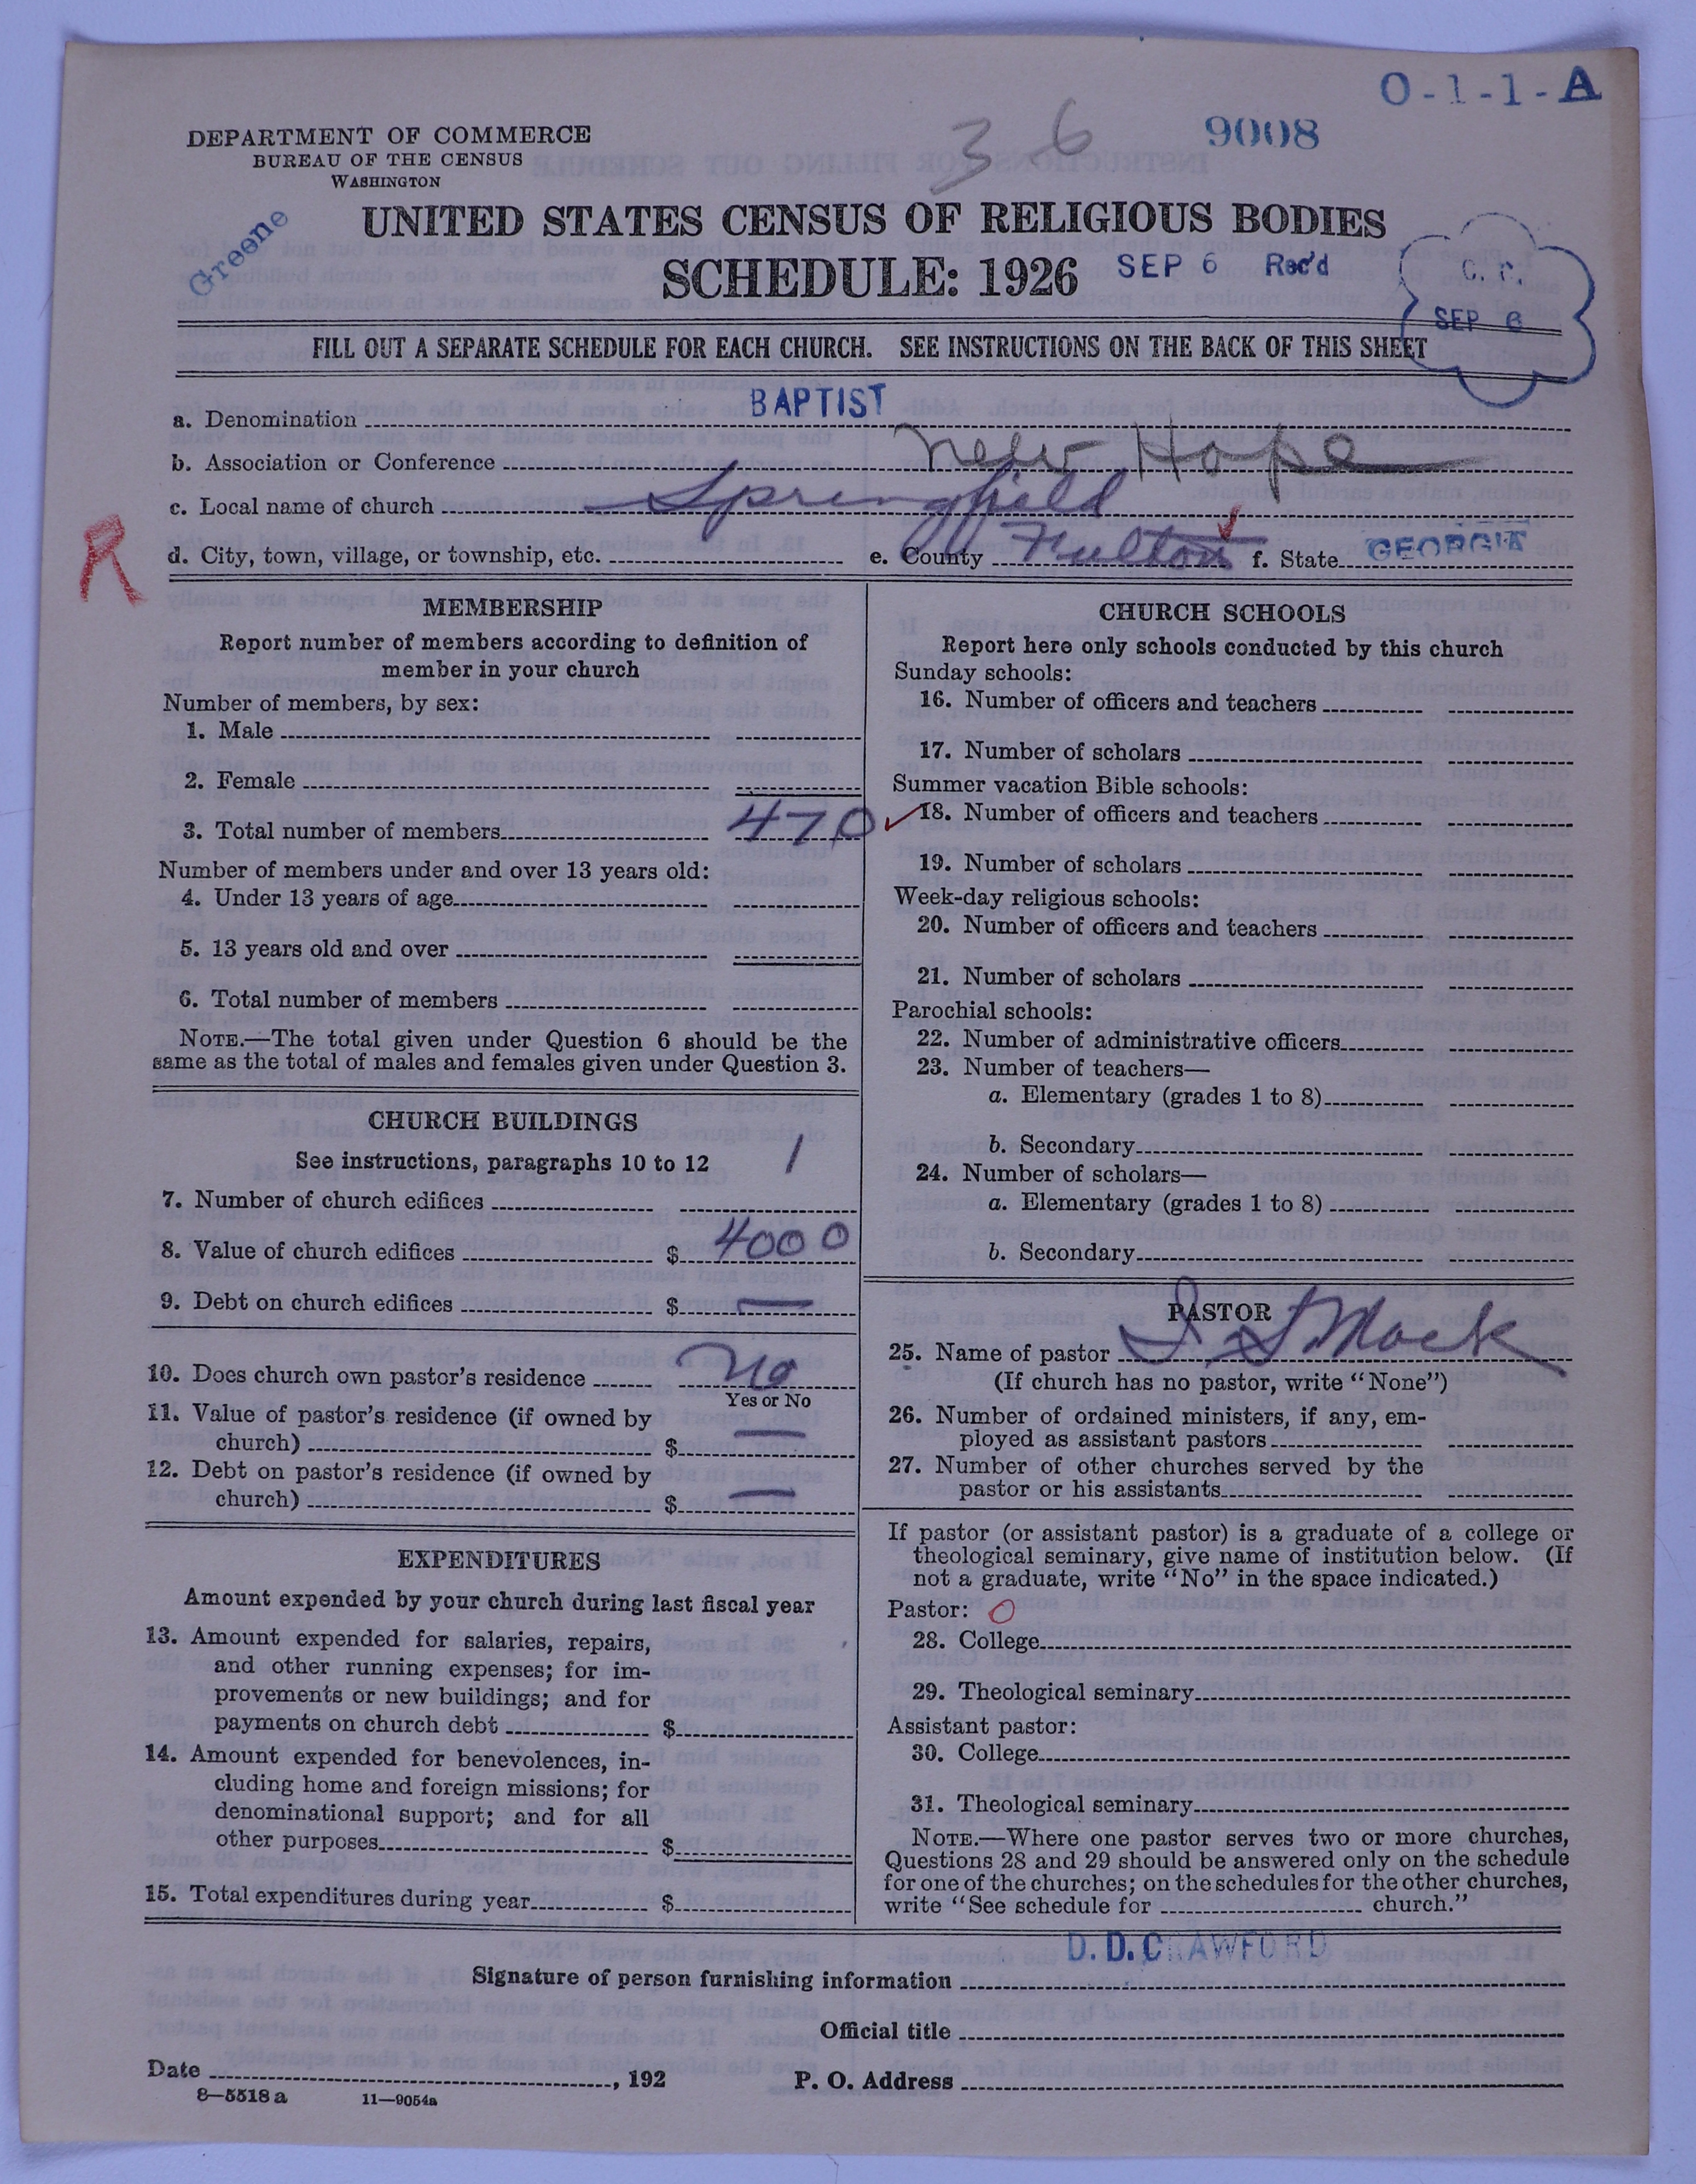 O-1-1-A
DEPARTMENT OF COMMERCE
BUREAU OF THE CENSUS
WASHINGTON
3 6
9008
Greene
UNITED STATES CENSUS OF RELIGIOUS BODIES
SCHEDULE: 1926 SEP 6 Rec'd
SEP 6
FILL OUT A SEPARATE SCHEDULE FOR EACH CHURCH. SEE INSTRUCTIONS ON THE BACK OF THIS SHEET
a. Denomination BAPTIST
b. Association or Conference New Hope
c. Local name of church Springfield
R
d. City, town, village, or township, etc. e. County Fulton f. State GEORGIA
MEMBERSHIP
Report number of members according to definition of
member in your church
Number of members, by sex:
1. Male
2. Female
3. Total number of members 470
Number of members under and over 13 years old:
4. Under 13 years of age
5. 13 years old and over
6. Total number of members
NOTE.—The total given under Question 6 should be the
same as the total of males and females given under Question 3.
CHURCH BUILDINGS
See instructions, paragraphs 10 to 12
7. Number of church edifices 1
8. Value of church edifices $ 4000
9. Debt on church edifices $ —
10. Does church own pastor's residence No
Yes or No
11. Value of pastor's residence (if owned by
church) $ —
12. Debt on pastor's residence (if owned by
church) $ —
EXPENDITURES
Amount expended by your church during last fiscal year
13. Amount expended for salaries, repairs,
and other running expenses; for im-
provements or new buildings; and for
payments on church debt $
14. Amount expended for benevolences, in-
cluding home and foreign missions; for
denominational support; and for all
other purposes $
15. Total expenditures during year $
CHURCH SCHOOLS
Report here only schools conducted by this church
Sunday schools:
16. Number of officers and teachers
17. Number of scholars
Summer vacation Bible schools:
18. Number of officers and teachers
19. Number of scholars
Week-day religious schools:
20. Number of officers and teachers
21. Number of scholars
Parochial schools:
22. Number of administrative officers
23. Number of teachers—
a. Elementary (grades 1 to 8)
b. Secondary
24. Number of scholars—
a. Elementary (grades 1 to 8)
b. Secondary
PASTOR
25. Name of pastor S. S. Mack
(If church has no pastor, write "None")
26. Number of ordained ministers, if any, em-
ployed as assistant pastors
27. Number of other churches served by the
pastor or his assistants
If pastor (or assistant pastor) is a graduate of a college or
theological seminary, give name of institution below. (If
not a graduate, write "No" in the space indicated.)
Pastor: O
28. College
29. Theological seminary
Assistant pastor:
30. College
31. Theological seminary
NOTE.—Where one pastor serves two or more churches,
Questions 28 and 29 should be answered only on the schedule
for one of the churches; on the schedules for the other churches,
write "See schedule for church."
D. D. CRAWFORD
Signature of person furnishing information
Official title
Date , 192 P. O. Address
8—5518 a 11—9054a